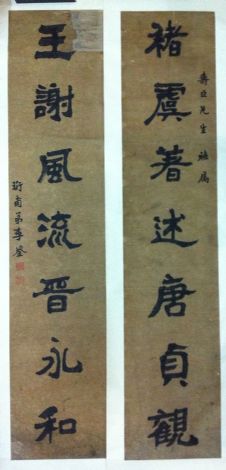 褚虞著述唐貞觀
先生雅属
王謝風流晉永和
甫弟李